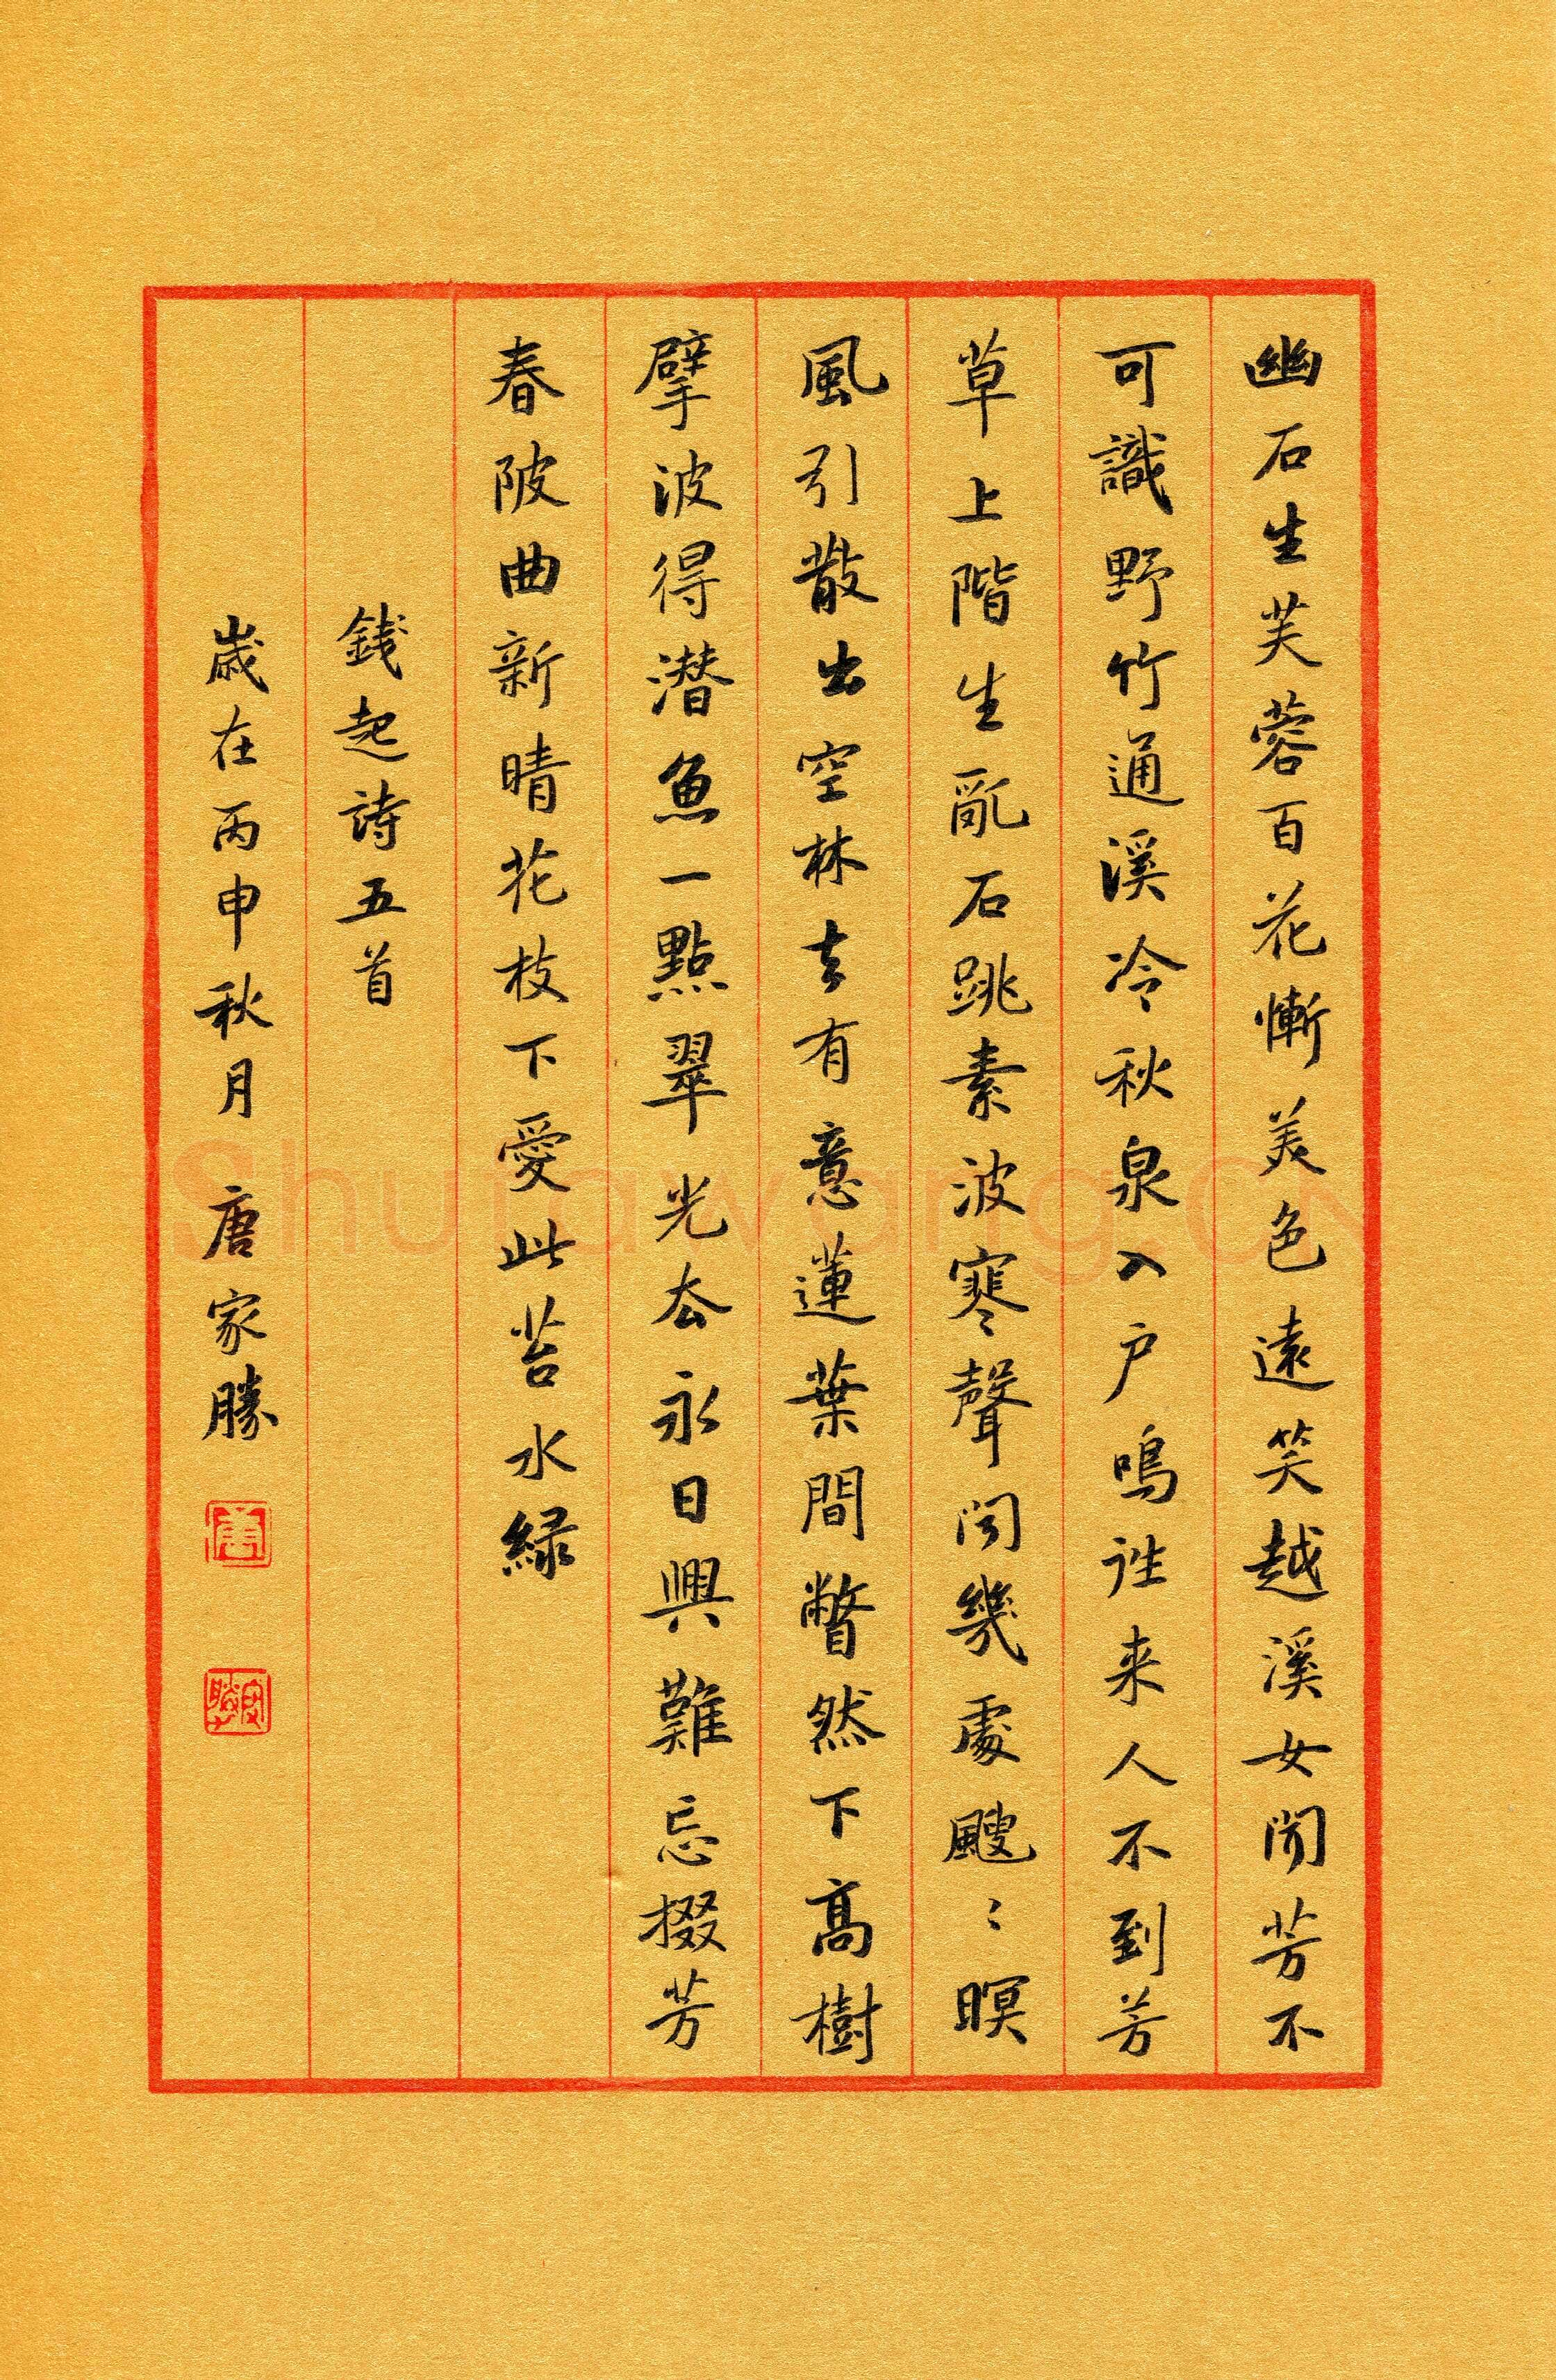 幽石生芙蓉百花慚美色遠笑越溪女聞芳不
可識野竹通溪冷秋泉入户鳴亂来人不到芳
草上階生亂石跳素波寒聲闻幾處颼〻暝
風引散出空林去有意蓮葉間瞥然下高樹
擘波得潜魚一點翠光去永日興難忘掇芳
春陂曲新晴花枝下愛此苔水緑
錢起詩五首
歲在丙申秋月 唐家勝
唐
家勝
Shufawang.CN